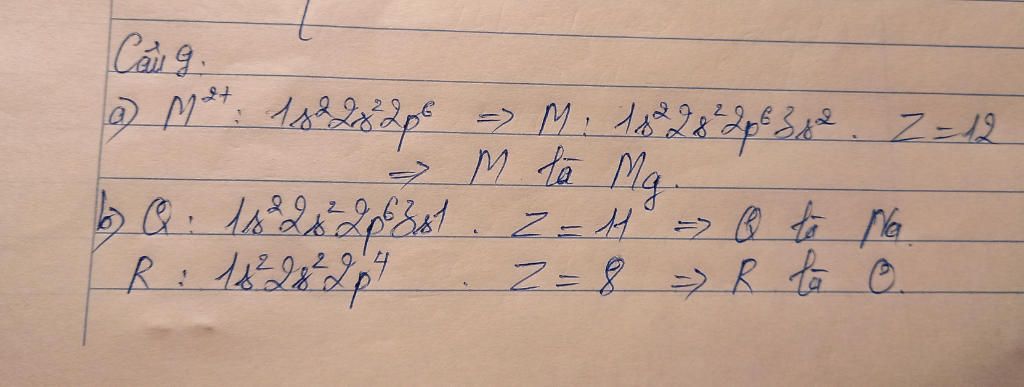 Câu 9.
a) M²⁺: 1s²2s²2p⁶ => M: 1s²2s²2p⁶3s². Z = 12
=> M là Mg.
b) Q: 1s²2s²2p⁶3s1. Z = 11 => Q là Na.
R: 1s²2s²2p⁴. Z = 8 => R là O.